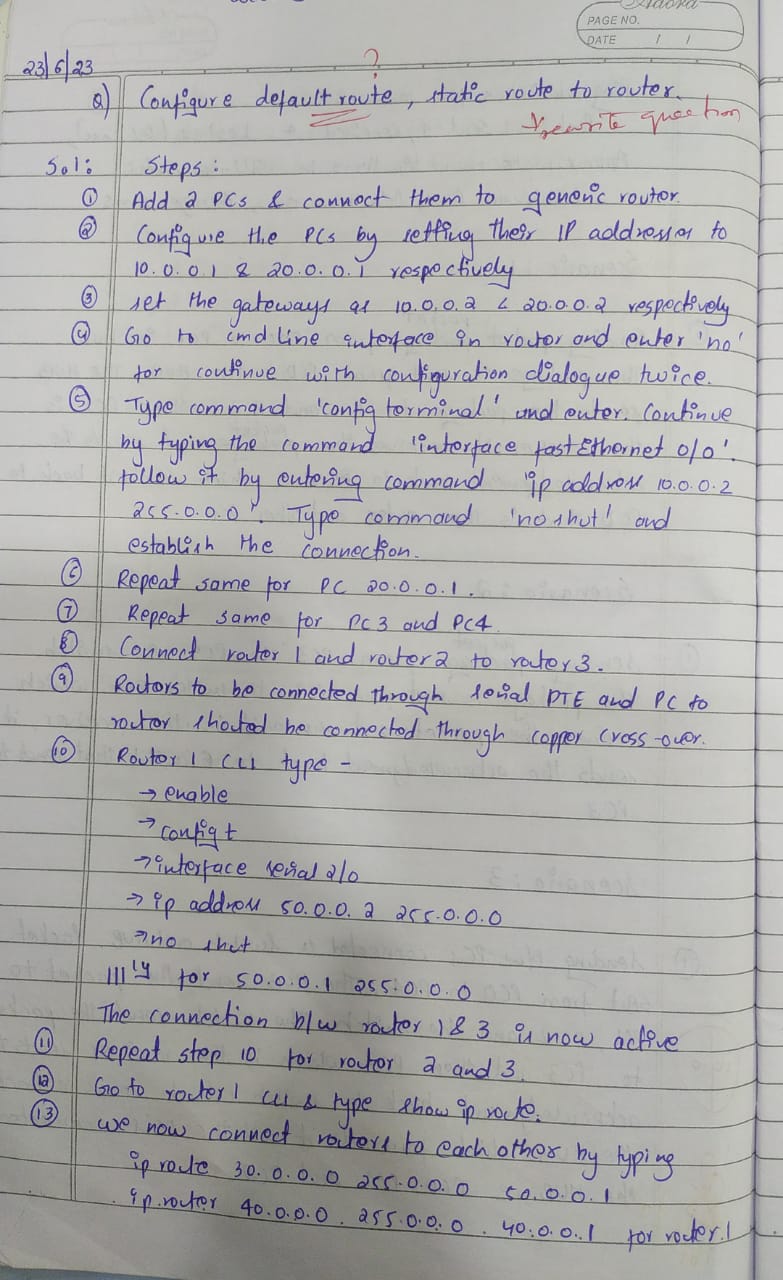 PAGE NO.
DATE / /
23/6/23
?
Q) Configure default route, static route to router.
rewrite question
Sol: Steps:
① Add 2 PCs & connect them to generic router.
② Configure the PCs by setting their IP addresses to
10.0.0.1 & 20.0.0.1 respectively
③ set the gateways as 10.0.0.2 & 20.0.0.2 respectively
④ Go to cmd line interface in router and enter 'no'
for continue with configuration dialogue twice.
⑤ Type command 'config terminal' and enter. Continue
by typing the command 'interface fastEthernet 0/0'.
follow it by entering command 'ip address 10.0.0.2
255.0.0.0'. Type command 'no shut' and
establish the connection.
⑥ Repeat same for PC 20.0.0.1.
⑦ Repeat same for PC3 and PC4
⑧ Connect router 1 and router 2 to router 3.
⑨ Routers to be connected through serial DTE and PC to
router should be connected through copper cross-over.
⑩ Router 1 CLI type -
→ enable
→ config t
→ interface serial 2/0
→ ip address 50.0.0.2 255.0.0.0
→ no shut
|||ly for 50.0.0.1 255.0.0.0
The connection b/w router 1 & 3 is now active
⑪ Repeat step 10 for router 2 and 3.
⑫ Go to router 1 CLI & type show ip route.
⑬ we now connect routers to each other by typing
ip route 30.0.0.0 255.0.0.0 50.0.0.1
ip router 40.0.0.0. 255.0.0.0. 40.0.0.1 for router 1